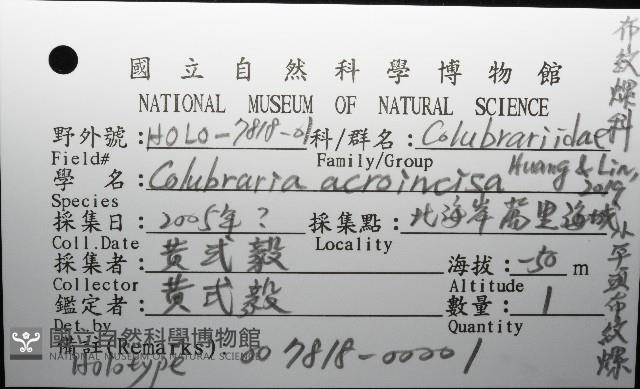 國立自然科學博物館
NATIONAL MUSEUM OF NATURAL SCIENCE
野外號:HOLO-7818-01 科/群名:Colubrariidae
Field# Family/Group
學 名:Colubraria acroincisa Huang & Lin, 2019
Species
採集日:2005年? 採集點:北海岸萬里海域
Coll.Date Locality
採集者:黄式毅 海拔:-50 m
Collector Altitude
鑑定者:黄式毅 數量:1
Det.by Quantity
備註(Remarks):007818-00001
Holotype
布紋螺科
平頭布紋螺
國立自然科學博物館
NATIONAL MUSEUM OF NATURAL SCIENCE